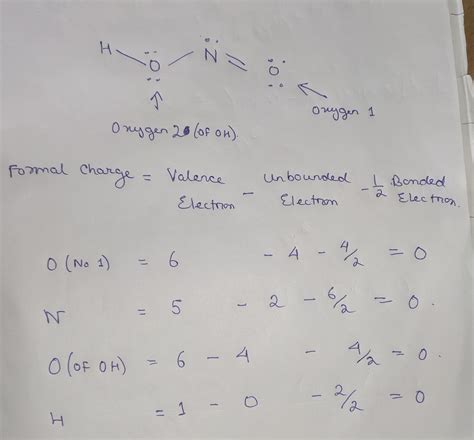 H
O
N
O
Oxygen 1
Oxygen 2 (of OH)
Formal Charge = Valence Electron - Unbounded Electron - 1/2 Bonded Electron.
O (No 1) = 6 - 4 - 4/2 = 0
N = 5 - 2 - 6/2 = 0.
O (OF OH) = 6 - 4 - 4/2 = 0.
H = 1 - 0 - 2/2 = 0